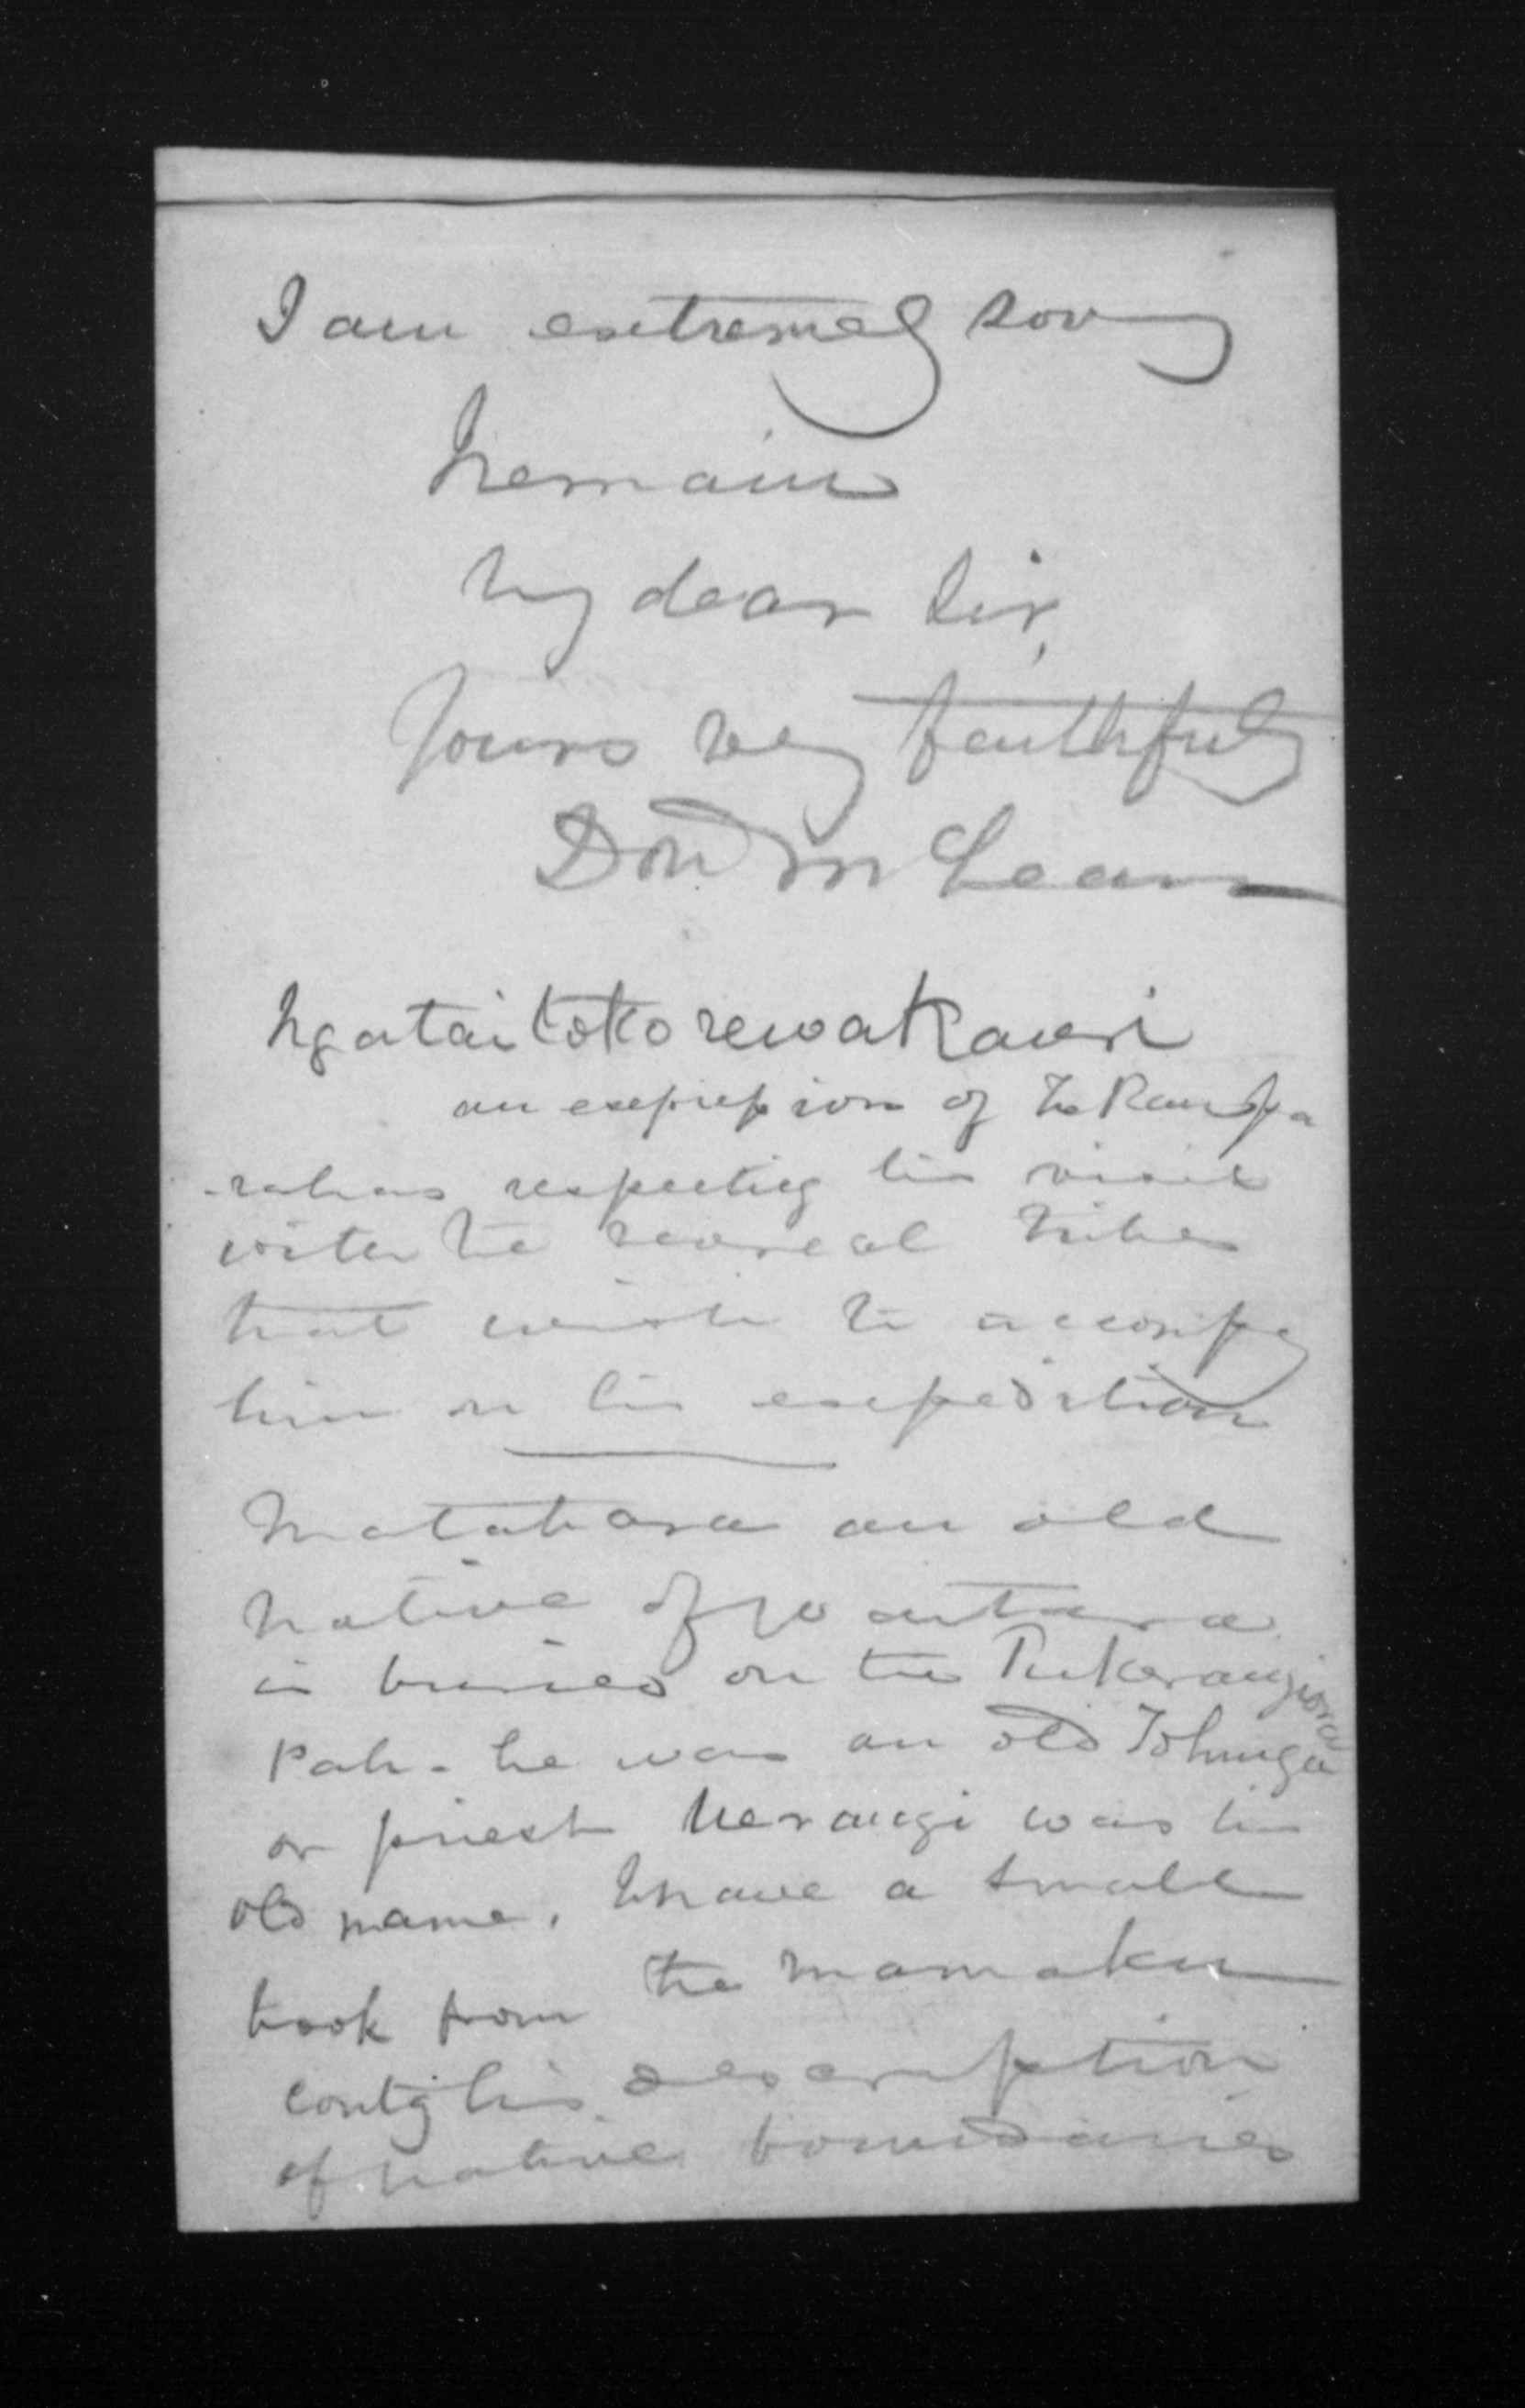 I am extremely sorry
I remain
My dear Sir,
Yours very faithfully
Dond McLean
Ngataitokorewakaueri
an expression of Te Raupa
-rahas respecting his visit
with the several tribes
that wish to accompy
him on his expedition
Matatara an old
native of Waitara
is buried on the Pukerangiora
Pah - he was an old Tohunga
or priest Uerangi was his
old name. I have a small
book from the Mamaku
contg his description
of native boundaries